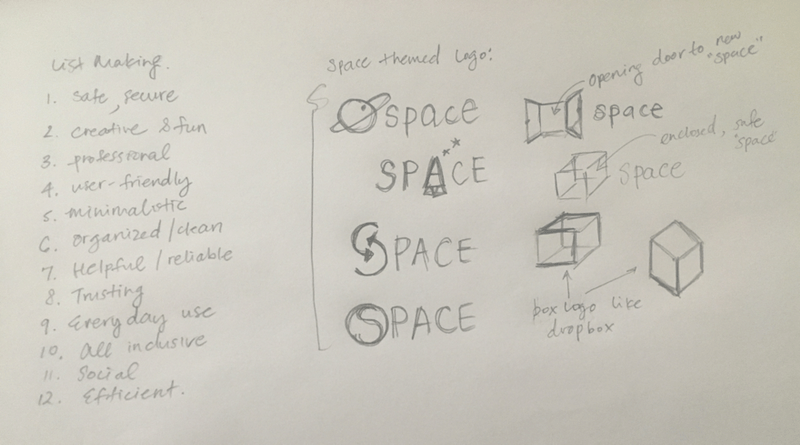 List Making.
1. Safe, secure
2. creative & fun
3. professional
4. user-friendly
5. minimalistic
6. organized/clean
7. Helpful/reliable
8. Trusting
9. Everyday use
10. All inclusive
11. Social
12. Efficient.
Space themed logo:
space
SPACE
SPACE
SPACE
opening door to new
"space"
space
enclosed, safe
"space"
space
box logo like
dropbox